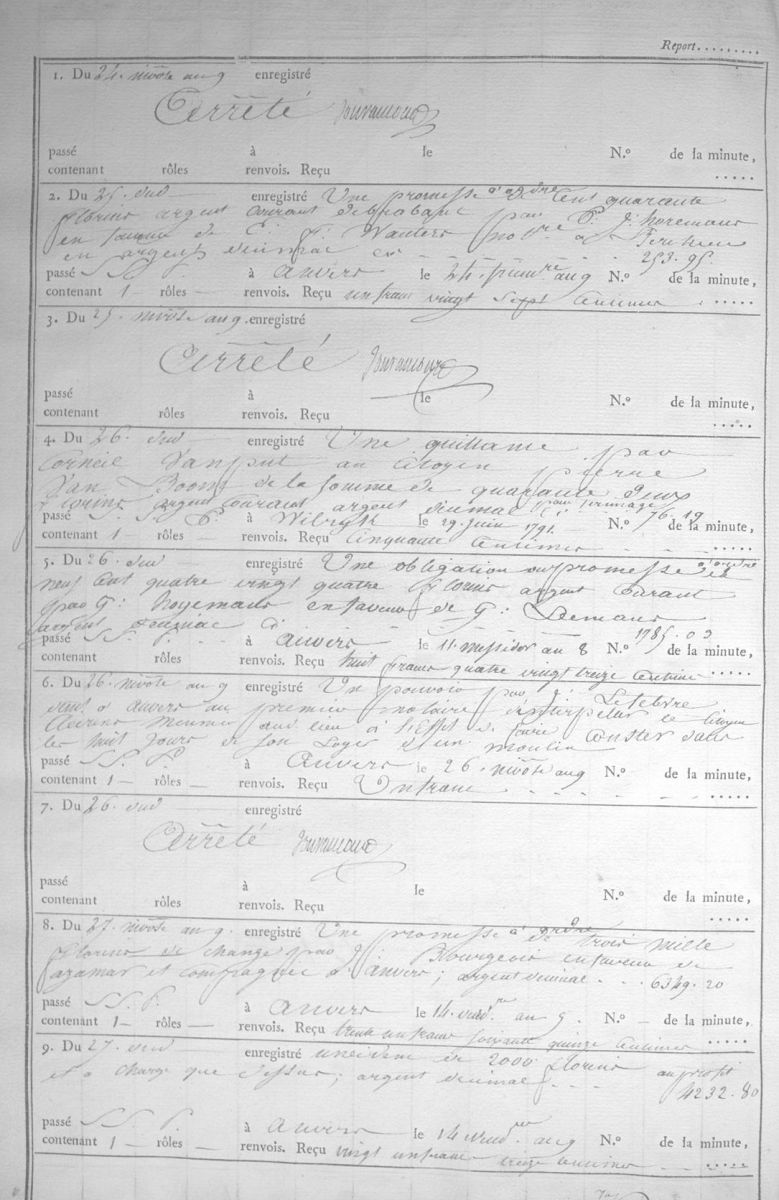 Report.........
1. Du 24. nivôse an 9 enregistré
Arrêté
passé à le N.º de la minute,
contenant rôles renvois. Reçu .....
2. Du 25. dud enregistré Une promesse à ordre de Cent quarante
florins argent Courant de brabant par P: J: horemans
en faveur de Wauters
en argent decimal 253.95
passé S. S. P. à Anvers le 24. an 9 N.º de la minute,
contenant 1 - rôles - renvois. Reçu un franc vingt Sept Centimes .....
3. Du 25. nivôse an 9. enregistré
Arrêté
passé à le N.º de la minute,
contenant rôles renvois. Reçu .....
4. Du 26. dud enregistré Une quittance par
Corneil Vanput au Citoyen pierre
Van Boom de la Somme de quarante deux
florins argent Courant argent decimal 76.19
passé S. S. P. à Wilryk le 29. juin 1791. N.º de la minute,
contenant 1 - rôles - renvois. Reçu Cinquante Centimes .....
5. Du 26. dud enregistré Une obligation ou promesse à ordre de
neuf Cent quatre vingt quatre florins argent Courant
par G: hoyemans en faveur de G: Lemans
argent decimal 1785.03
passé S. S. P. à Anvers le 11. messidor an 8 N.º de la minute,
contenant 1 - rôles - renvois. Reçu huit francs quatre vingt treize Centimes .....
6. Du 26. nivôse an 9 enregistré Un pouvoir par J: Lefebvre
d'anvers au premier notaire d'interpeller le Citoyen
meunier aud lieu à l'effet de faire Conster dans
les huit jours de son Loyer d'un moulin
passé S. S. P. à Anvers le 26. nivôse an 9 N.º de la minute,
contenant 1 - rôles - renvois. Reçu Un franc .....
7. Du 26. dud enregistré
Arrêté
passé à le N.º de la minute,
contenant rôles renvois. Reçu .....
8. Du 27. nivôse an 9. enregistré Une promesse à ordre de trois mille
florins de change par J: Bourgeois en faveur de
agamar et compagnie d'anvers; argent decimal . . . 6349.20
passé S. S. P. à Anvers le 14. vend.re an 9. N.º - de la minute,
contenant 1 - rôles - renvois. Reçu trente un francs soixante quinze Centimes .....
9. Du 27. dud enregistré une idem de 2000 florins au profit
et a charge que dessus; argent decimal . . . 4232.80
passé S. S. P. à Anvers le 14 vend.re an 9 N.º de la minute,
contenant 1 - rôles - renvois. Reçu vingt un francs treize Centimes .....